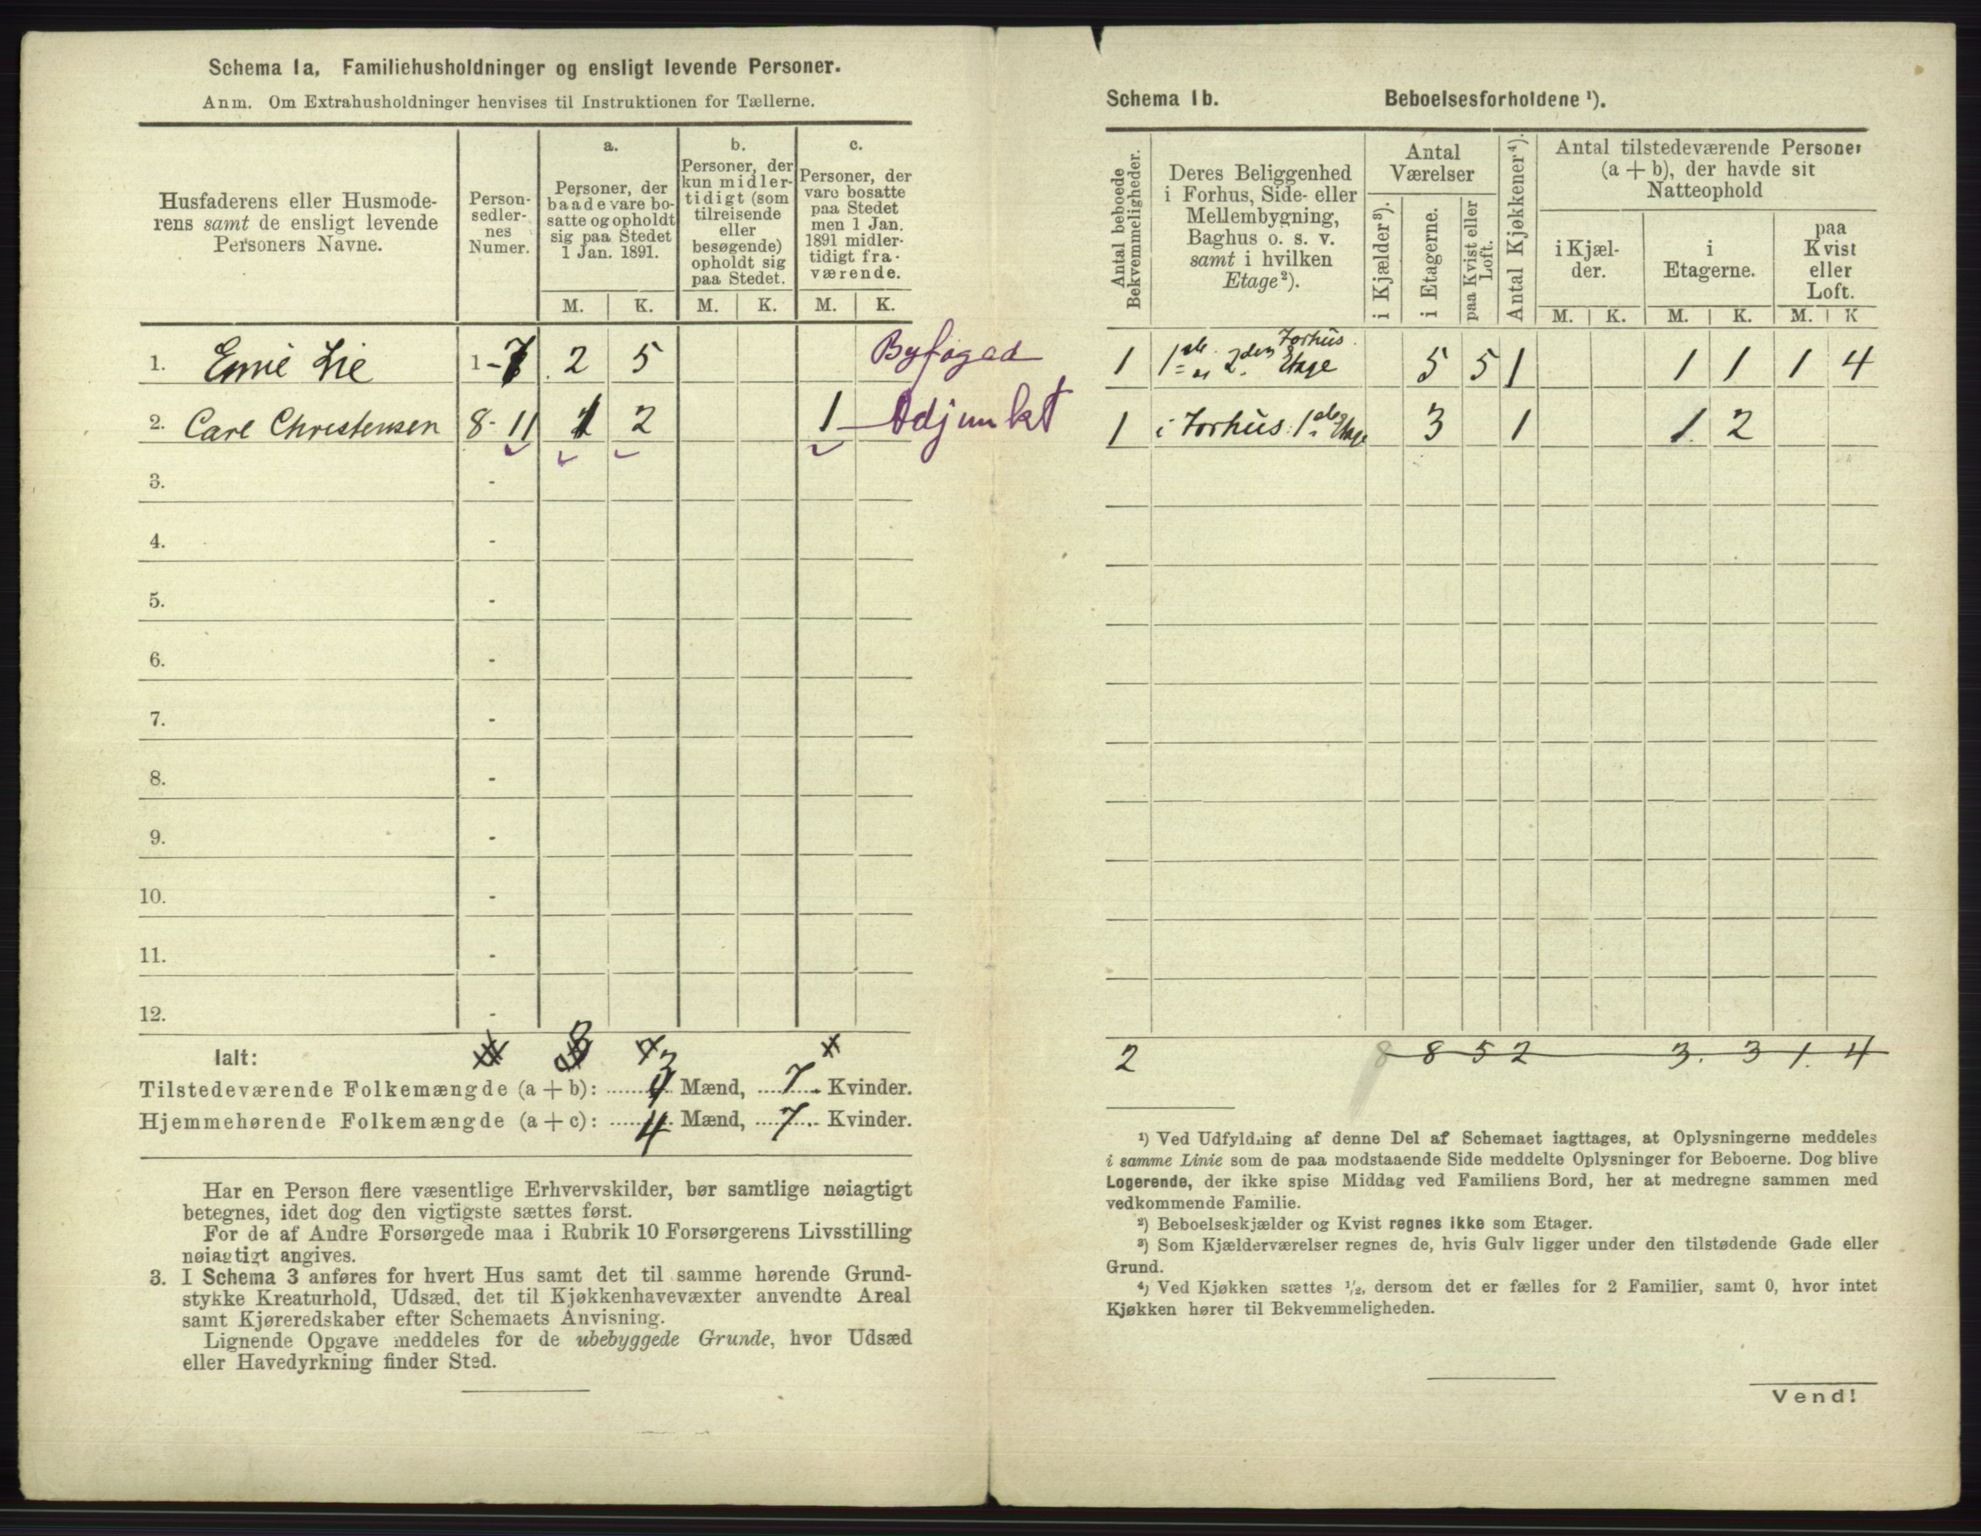 Schema Ia, Familiehusholdninger og ensligt levende Personer.
Anm. Om Extrahusholdninger henvises til Instruktionen for Tællerne.
Husfaderens eller Husmoderens samt de ensligt levende Personers Navne.
Personsedlernes Numer.
a.
Personer, der baade vare bosatte og opholdt sig paa Stedet 1 Jan. 1891.
b.
Personer, der kun midlertidigt (som tilreisende eller besøgende) opholdt sig paa Stedet.
c.
Personer, der vare bosatte paa Stedet men 1 Jan. 1891 midlertidigt fraværende.
M. K. M. K. M. K.
1. Lie 1-7 2 5 Byfogad
2. Carl Christensen 8-11 2 1 Adjunkt
3. -
4. -
5. -
6. -
7. -
8. -
9. -
10. -
11. -
12. -
Ialt:
Tilstedeværende Folkemængde (a + b): Mænd, 7 Kvinder.
Hjemmehørende Folkemængde (a + c): 4 Mænd, 7 Kvinder.
Har en Person flere væsentlige Erhvervskilder, bør samtlige nøiagtigt
betegnes, idet dog den vigtigste sættes først.
For de af Andre Forsørgede maa i Rubrik 10 Forsørgerens Livsstilling
nøiagtigt angives.
3. I Schema 3 anføres for hvert Hus samt det til samme hørende Grund-
stykke Kreaturhold, Udsæd, det til Kjøkkenhavevæxter anvendte Areal
samt Kjøreredskaber efter Schemaets Anvisning.
Lignende Opgave meddeles for de ubebyggede Grunde, hvor Udsæd
eller Havedyrkning finder Sted.
Schema Ib. Beboelsesforholdene ¹).
Antal beboede Bekvemmeligheder.
Deres Beliggenhed i Forhus, Side- eller Mellembygning, Baghus o. s. v. samt i hvilken Etage²).
Antal Værelser
i Kjælder³).
i Etagerne.
paa Kvist eller Loft.
Antal Kjøkkener⁴).
Antal tilstedeværende Personer (a + b), der havde sit Natteophold
i Kjælder.
i Etagerne.
paa Kvist eller Loft.
M. K. M. K. M. K
1 Forhus Etage 5 5 1 1 1 1 4
1 i Forhus 1ste Etage 3 1 1 2
2 8 8 5 2 3. 3 1. 4
¹) Ved Udfyldning af denne Del af Schemaet iagttages, at Oplysningerne meddeles
i samme Linie som de paa modstaaende Side meddelte Oplysninger for Beboerne. Dog blive
Logerende, der ikke spise Middag ved Familiens Bord, her at medregne sammen med
vedkommende Familie.
²) Beboelseskjælder og Kvist regnes ikke som Etager.
³) Som Kjælderværelser regnes de, hvis Gulv ligger under den tilstødende Gade eller
Grund.
⁴) Ved Kjøkken sættes ¹/₂, dersom det er fælles for 2 Familier, samt 0, hvor intet
Kjøkken hører til Bekvemmeligheden.
Vend!